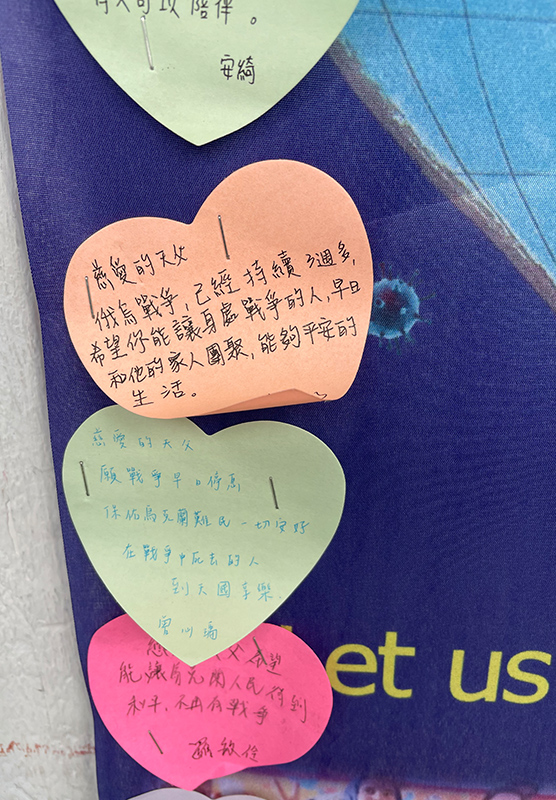 有人可以陪伴。
安綺
慈愛的天父
俄烏戰爭，已經持續3週多，
希望你能讓身處戰爭的人，早日
和他的家人團聚，能夠平安的
生活。
慈愛的天父
願戰爭早日停息
保佑烏克蘭難民一切安好
在戰爭中死去的人
到天國享樂.
曾心
父希望
能讓烏克蘭人民得到
和平，不再有戰爭
et us